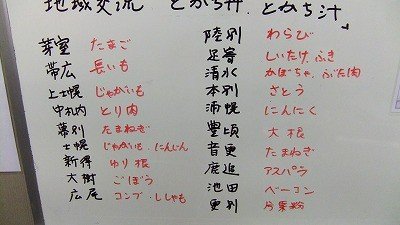 地域交流 とかち丼、とかち汁
芽室 たまご
帯広 長いも
上士幌 じゃがいも
中札内 とり肉
幕別 たまねぎ
士幌 じゃがいも、にんじん
新得 ゆり根
大樹 ごぼう
広尾 コンブ、ししゃも
陸別 わらび
足寄 しいたけ、ふき
清水 かぼちゃ、ぶた肉
本別 さとう
浦幌 にんにく
豊頃 大根
音更 たまねぎ
鹿追 アスパラ
池田 ベーコン
更別